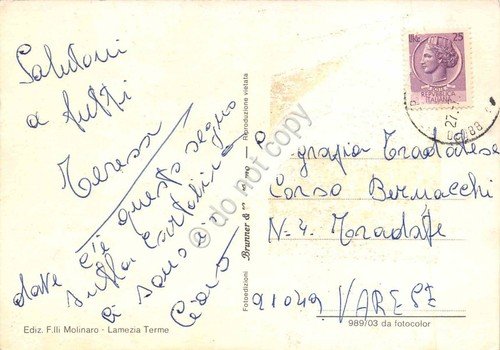 Salutoni
a tutti
Teresa
dove c'è questo segno
sulla cartolina
ci sono io
Ciao
Ediz. F.lli Molinaro - Lamezia Terme
Fotoedizioni Brunner & Riproduzione vietata
© do not copy
LIRE 25
REPUBBLICA
ITALIANA
27.
Tradatese
Corso Bernacchi
N=4. Tradate
21049 VARESE
989/03 da fotocolor